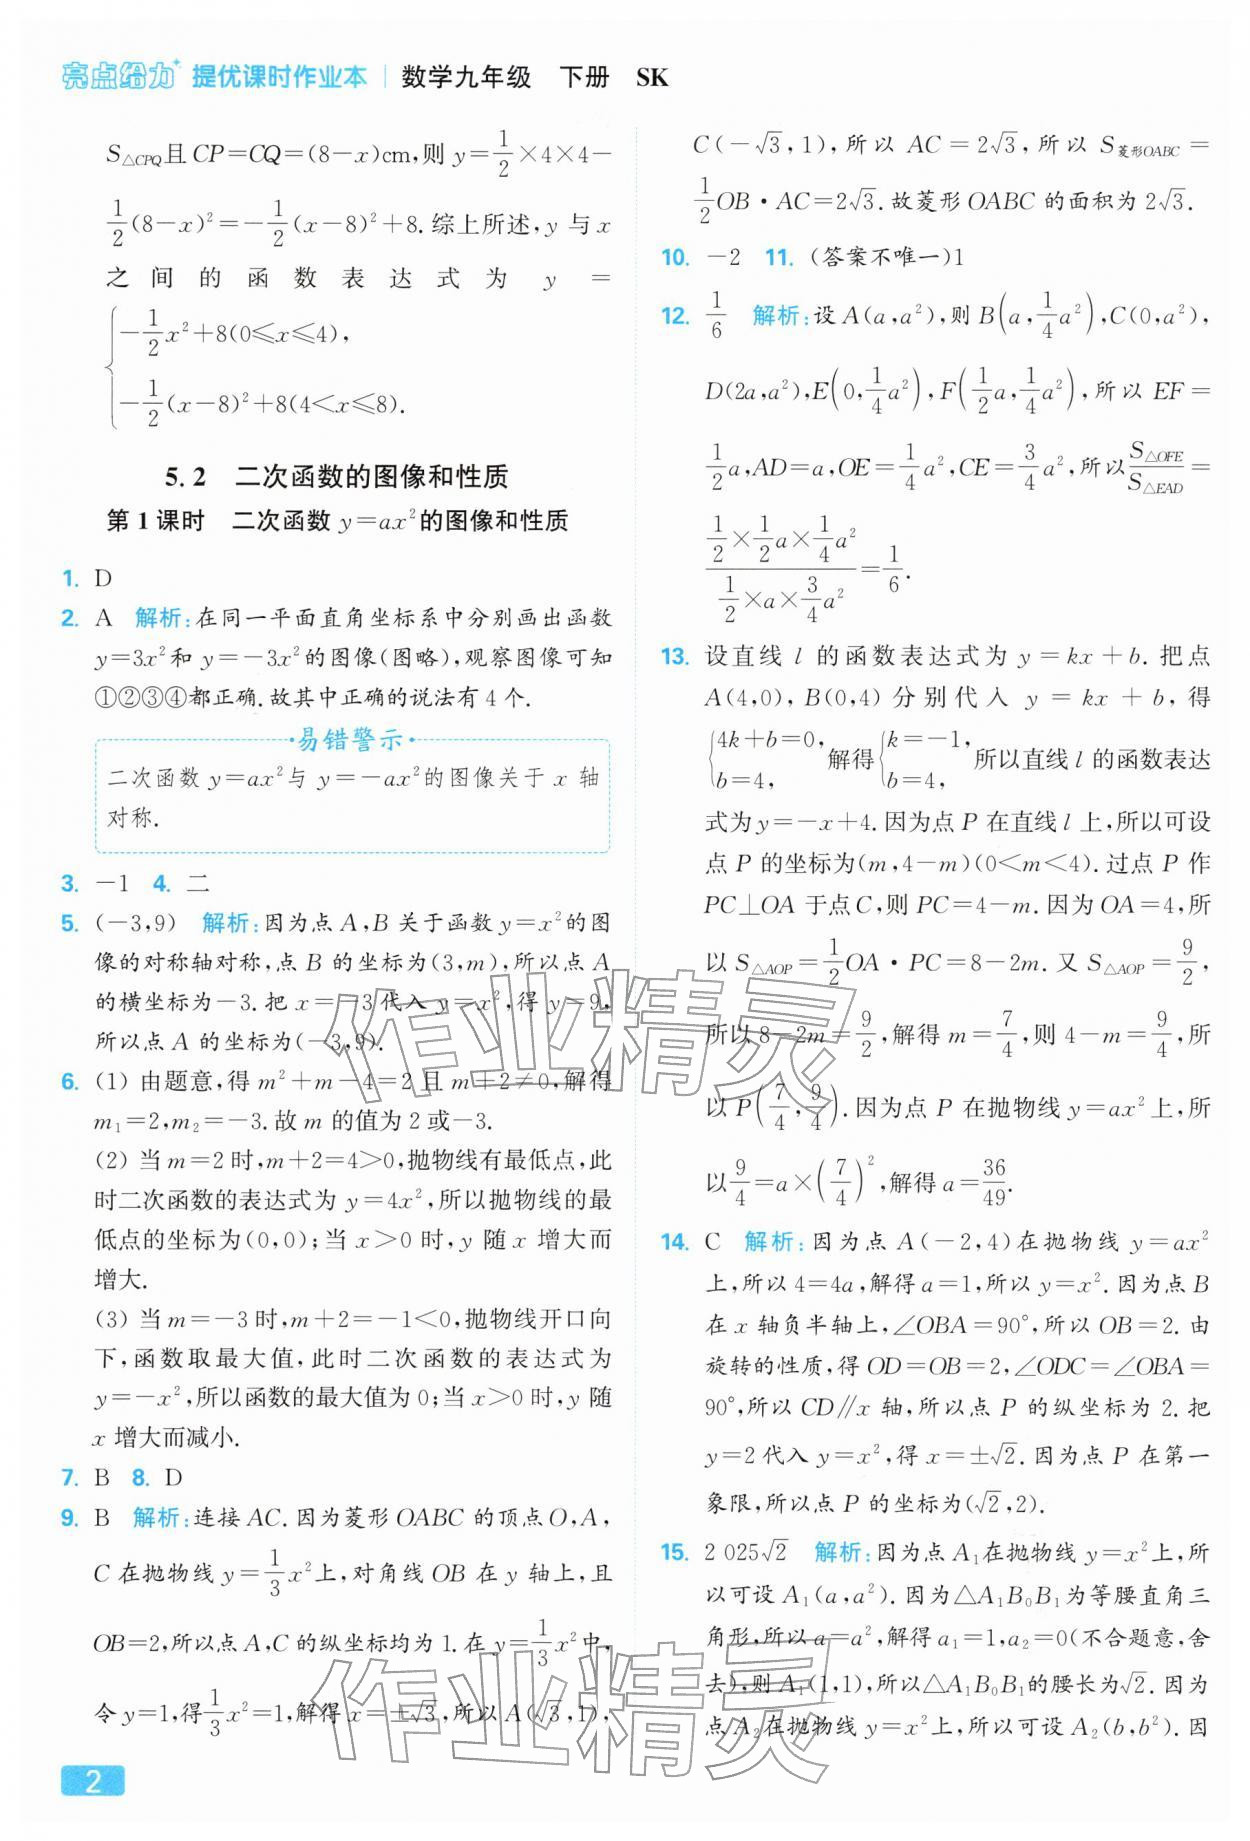 亮点给力 提优课时作业本 | 数学九年级 下册 SK
S△CPQ且CP=CQ=(8-x)cm,则 y=1/2×4×4-
1/2(8-x)²=-1/2(x-8)²+8.综上所述,y 与 x
之间的函数表达式为 y =
{-1/2x²+8(0≤x≤4),
-1/2(x-8)²+8(4<x≤8).
5.2 二次函数的图像和性质
第1课时 二次函数 y=ax²的图像和性质
1. D
2. A 解析:在同一平面直角坐标系中分别画出函数
y=3x²和 y=-3x²的图像(图略),观察图像可知
①②③④都正确.故其中正确的说法有 4 个.
·易错警示·
二次函数 y=ax²与 y=-ax²的图像关于 x 轴
对称.
3. -1 4. 二
5. (-3,9) 解析:因为点 A,B 关于函数 y=x²的图
像的对称轴对称,点 B 的坐标为(3,m),所以点 A
的横坐标为-3.把 x=-3代入 y=x²,得 y=9,
所以点 A 的坐标为(-3,9).
6. (1) 由题意,得 m²+m-4=2 且 m+2≠0,解得
m₁=2,m₂=-3.故 m 的值为 2 或-3.
(2) 当 m=2 时,m+2=4>0,抛物线有最低点,此
时二次函数的表达式为 y=4x²,所以抛物线的最
低点的坐标为(0,0);当 x>0 时,y 随 x 增大而
增大.
(3) 当 m=-3 时,m+2=-1<0,抛物线开口向
下,函数取最大值,此时二次函数的表达式为
y=-x²,所以函数的最大值为 0;当 x>0 时,y 随
x 增大而减小.
7. B 8. D
9. B 解析:连接 AC.因为菱形 OABC 的顶点 O,A,
C 在抛物线 y=1/3x²上,对角线 OB 在 y 轴上,且
OB=2,所以点 A,C 的纵坐标均为 1.在 y=1/3x²中,
令 y=1,得1/3x²=1,解得 x=±√3,所以 A(√3,1),
2
C(-√3,1),所以 AC=2√3,所以 S菱形OABC=
1/2OB·AC=2√3.故菱形 OABC 的面积为 2√3.
10. -2 11. (答案不唯一)1
12. 1/6 解析:设 A(a,a²),则 B(a,1/4a²),C(0,a²),
D(2a,a²),E(0,1/4a²),F(1/2a,1/4a²),所以 EF=
1/2a,AD=a,OE=1/4a²,CE=3/4a²,所以S△OFE/S△EAD=
(1/2×1/2a×1/4a²)/(1/2×a×3/4a²)=1/6.
13. 设直线 l 的函数表达式为 y=kx+b.把点
A(4,0),B(0,4)分别代入 y = kx + b,得
{4k+b=0, b=4, 解得{k=-1, b=4, 所以直线 l 的函数表达
式为 y=-x+4.因为点 P 在直线 l 上,所以可设
点 P 的坐标为(m,4-m)(0<m<4).过点 P 作
PC⊥OA 于点 C,则 PC=4-m.因为 OA=4,所
以 S△AOP=1/2OA·PC=8-2m.又 S△AOP=9/2,
所以 8-2m=9/2,解得 m=7/4,则 4-m=9/4,所
以 P(7/4,9/4).因为点 P 在抛物线 y=ax²上,所
以9/4=a×(7/4)²,解得 a=36/49.
14. C 解析:因为点 A(-2,4)在抛物线 y=ax²
上,所以 4=4a,解得 a=1,所以 y=x².因为点 B
在 x 轴负半轴上,∠OBA=90°,所以 OB=2.由
旋转的性质,得 OD=OB=2,∠ODC=∠OBA=
90°,所以 CD∥x 轴,所以点 P 的纵坐标为 2.把
y=2 代入 y=x²,得 x=±√2.因为点 P 在第一
象限,所以点 P 的坐标为(√2,2).
15. 2 025√2 解析:因为点 A₁在抛物线 y=x²上,所
以可设 A₁(a,a²).因为△A₁B₀B₁为等腰直角三
角形,所以 a=a²,解得 a₁=1,a₂=0(不合题意,舍
去),则 A₁(1,1),所以△A₁B₀B₁的腰长为√2.因为
点 A₂在抛物线 y=x²上,所以可设 A₂(b,b²).因
作业精灵
作业精灵